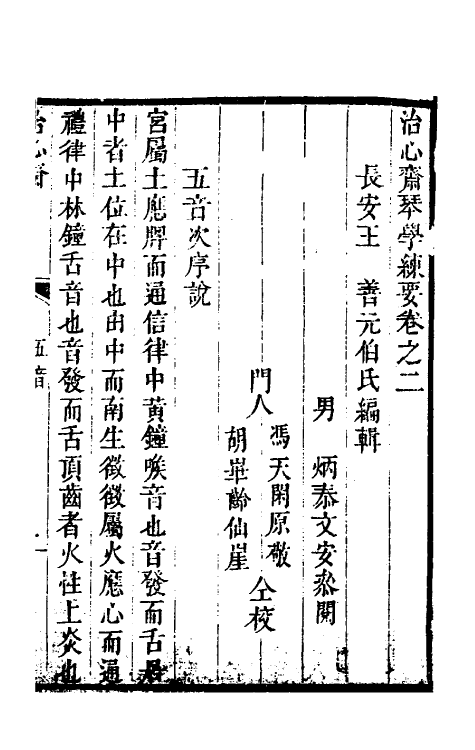 治心齋琴學練要卷之二
長安王　善元伯氏編輯
男　炳泰文安叅閱
門人　馮天閑原敬
胡峚齡仙崖　仝校
五音次序說
宮屬土應脾而通信律中黃鐘喉音也音發而舌居
中者土位在中也由中而南生徵徵屬火應心而通
禮律中林鐘舌音也音發而舌頂齒者火性上炎也
治心齋
五音